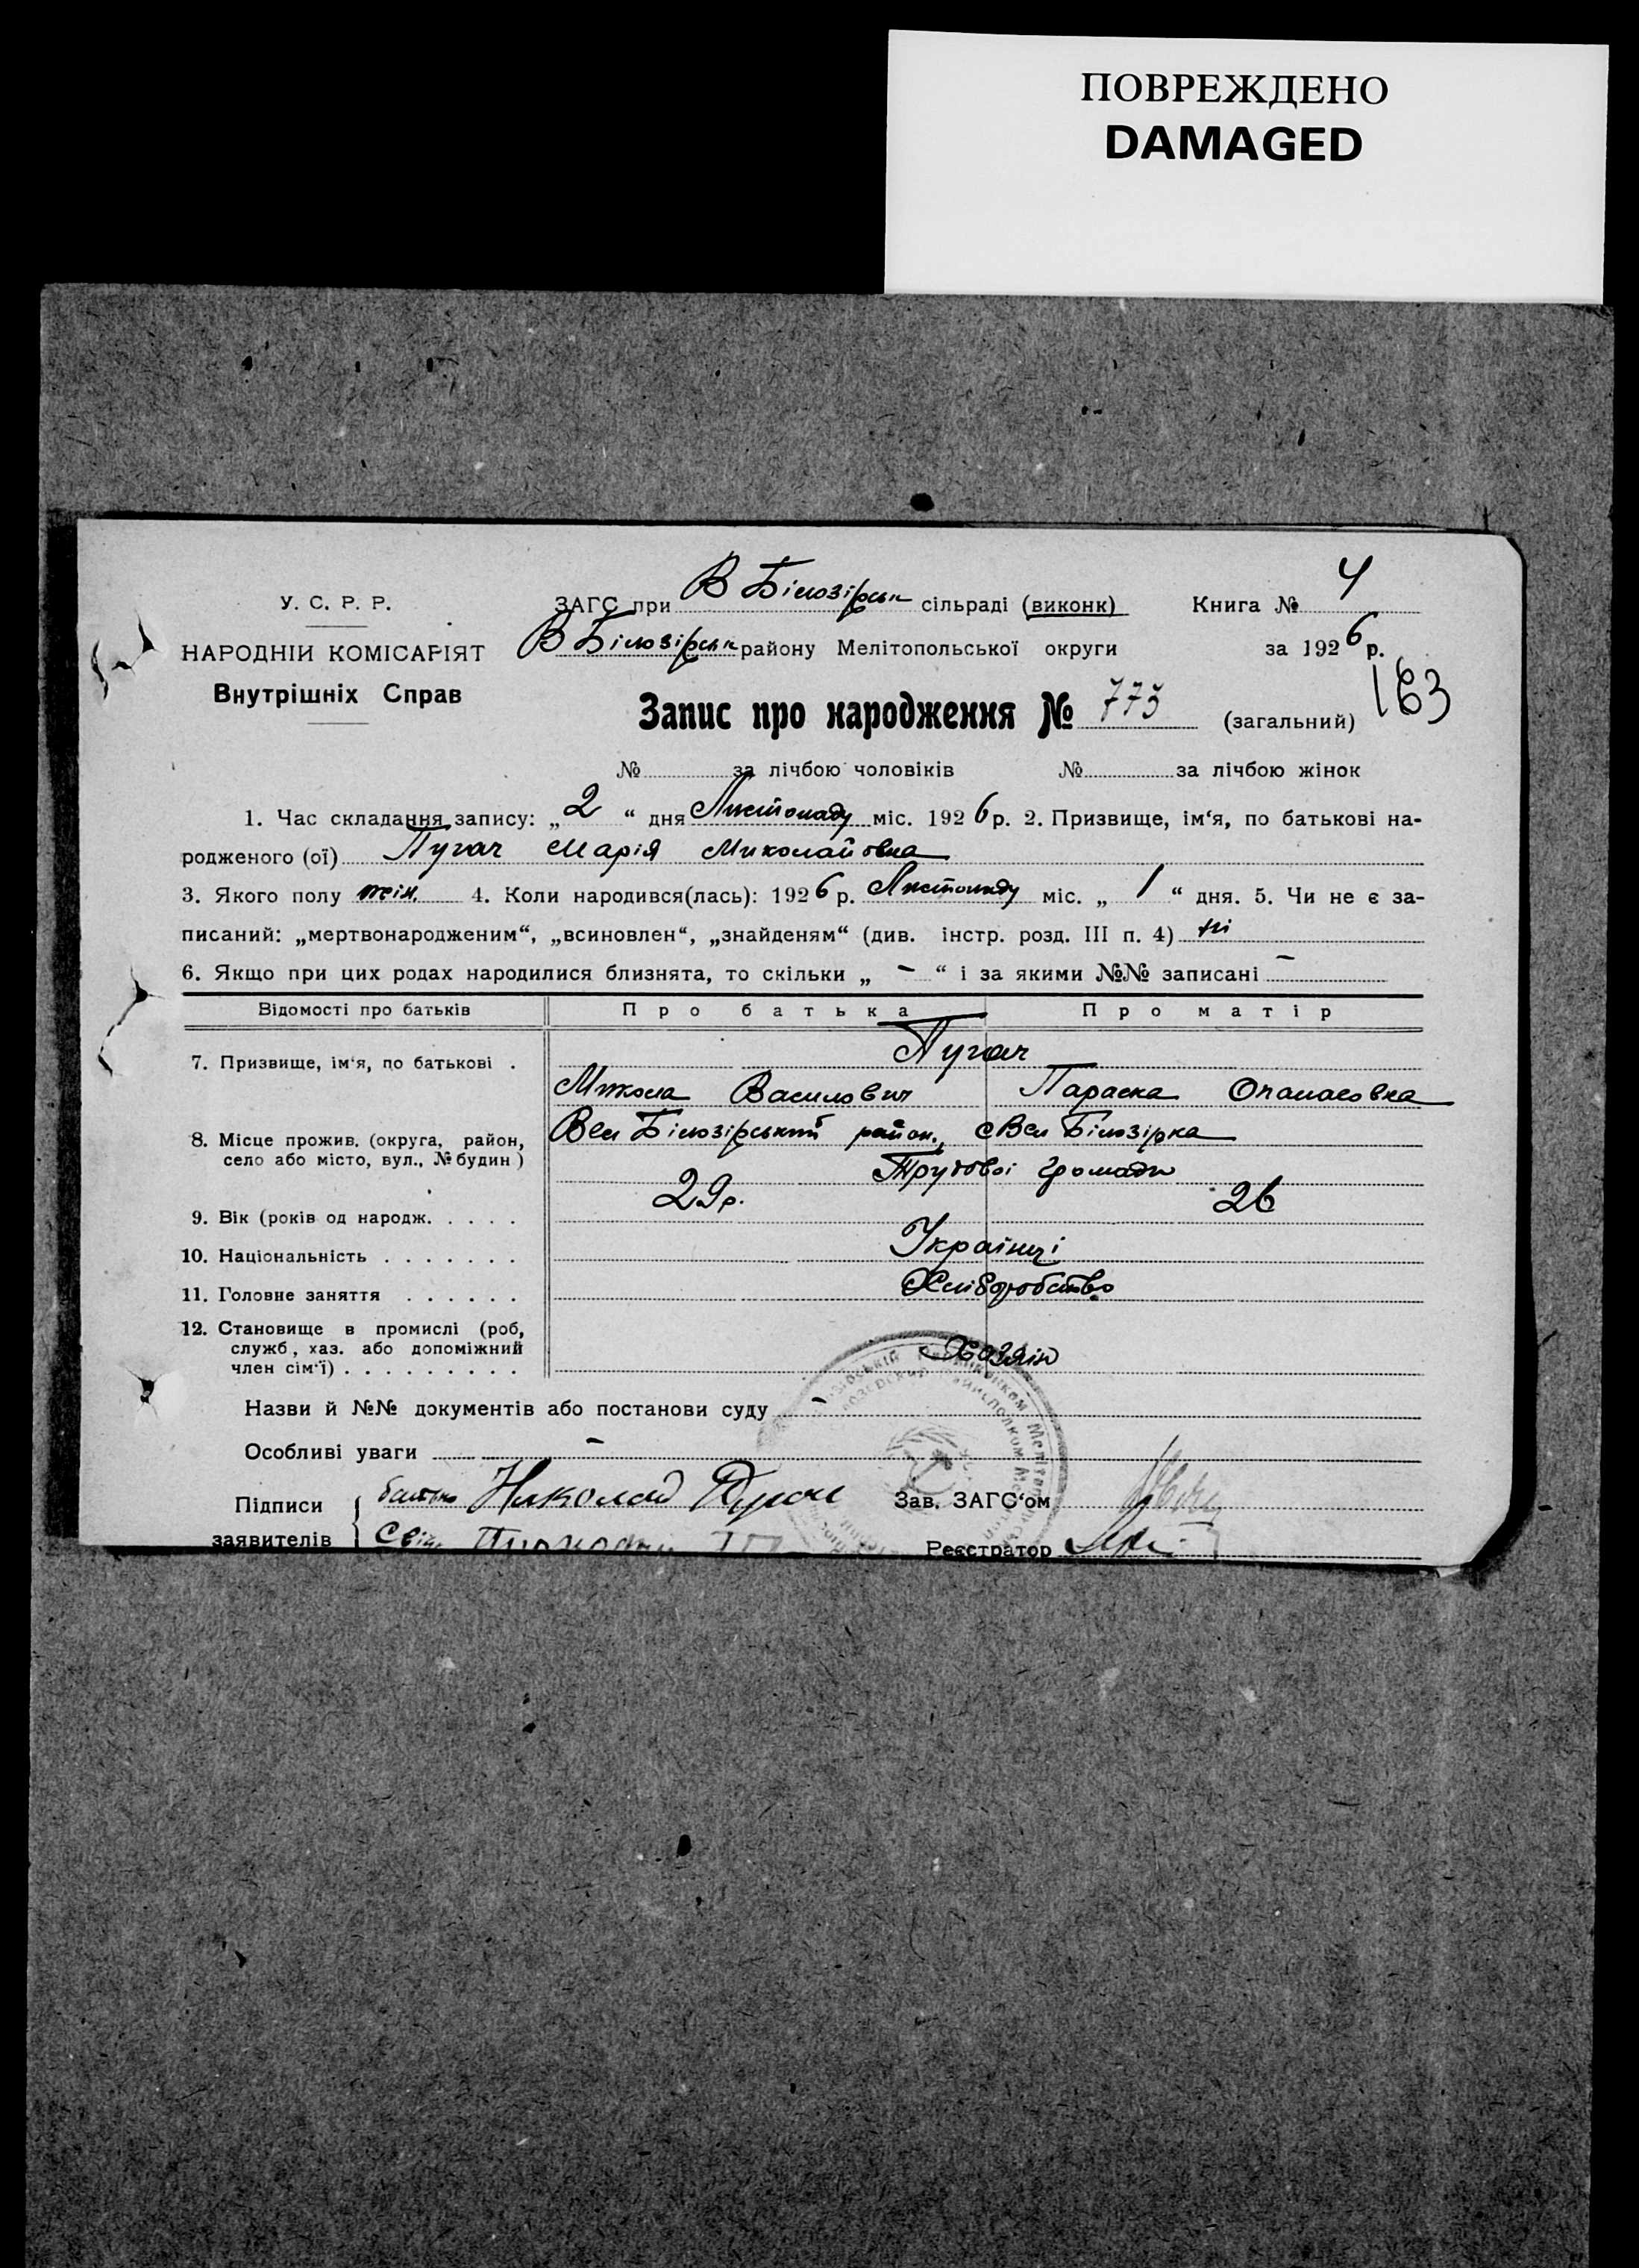 ПОВРЕЖДЕНО
DAMAGED
У. С. Р. Р.
НАРОДНІЙ КОМІСАРІЯТ
Внутрішніх Справ
ЗАГС при В Білозірськ сільраді (виконк)
В Білозірськ району Мелітопольської округи
Книга № 4
за 1926 р.
163
Запис про народження № 773 (загальний)
№ за лічбою чоловіків № за лічбою жінок
1. Час складання запису: „2“ дня Листопаду міс. 1926 р. 2. Призвище, ім‘я, по батькові на-
родженого (ої) Пугач Марія Миколайовна
3. Якого полу жін. 4. Коли народився(лась): 1926 р. Листопаду міс. „1“ дня. 5. Чи не є за-
писаний: „мертвонародженим“, „всиновлен“, „знайденям“ (див. інстр. розд. III п. 4) ні
6. Якщо при цих родах народилися близнята, то скільки „ - “ і за якими №№ записані -
Відомості про батьків Про батька Про матір
7. Призвище, ім‘я, по батькові . Пугач
Микола Василович Параска Опанасовна
8. Місце прожив. (округа, район, село або місто, вул., № будин) Вел Білозірський район., Вел Білозірка
Трудової громади
9. Вік (років од народж. . . . . 29р. 26
10. Національність . . . . . . . Українці
11. Головне заняття . . . . . . Хліборобство
12. Становище в промислі (роб,
служб, хаз. або допоміжний
член сім‘ї) . . . . . . . . . Хазяін
Назви й №№ документів або постанови суду -
Особливі уваги -
Підписи батько Николай Пугач Зав. ЗАГС‘ом
заявителів Реєстратор